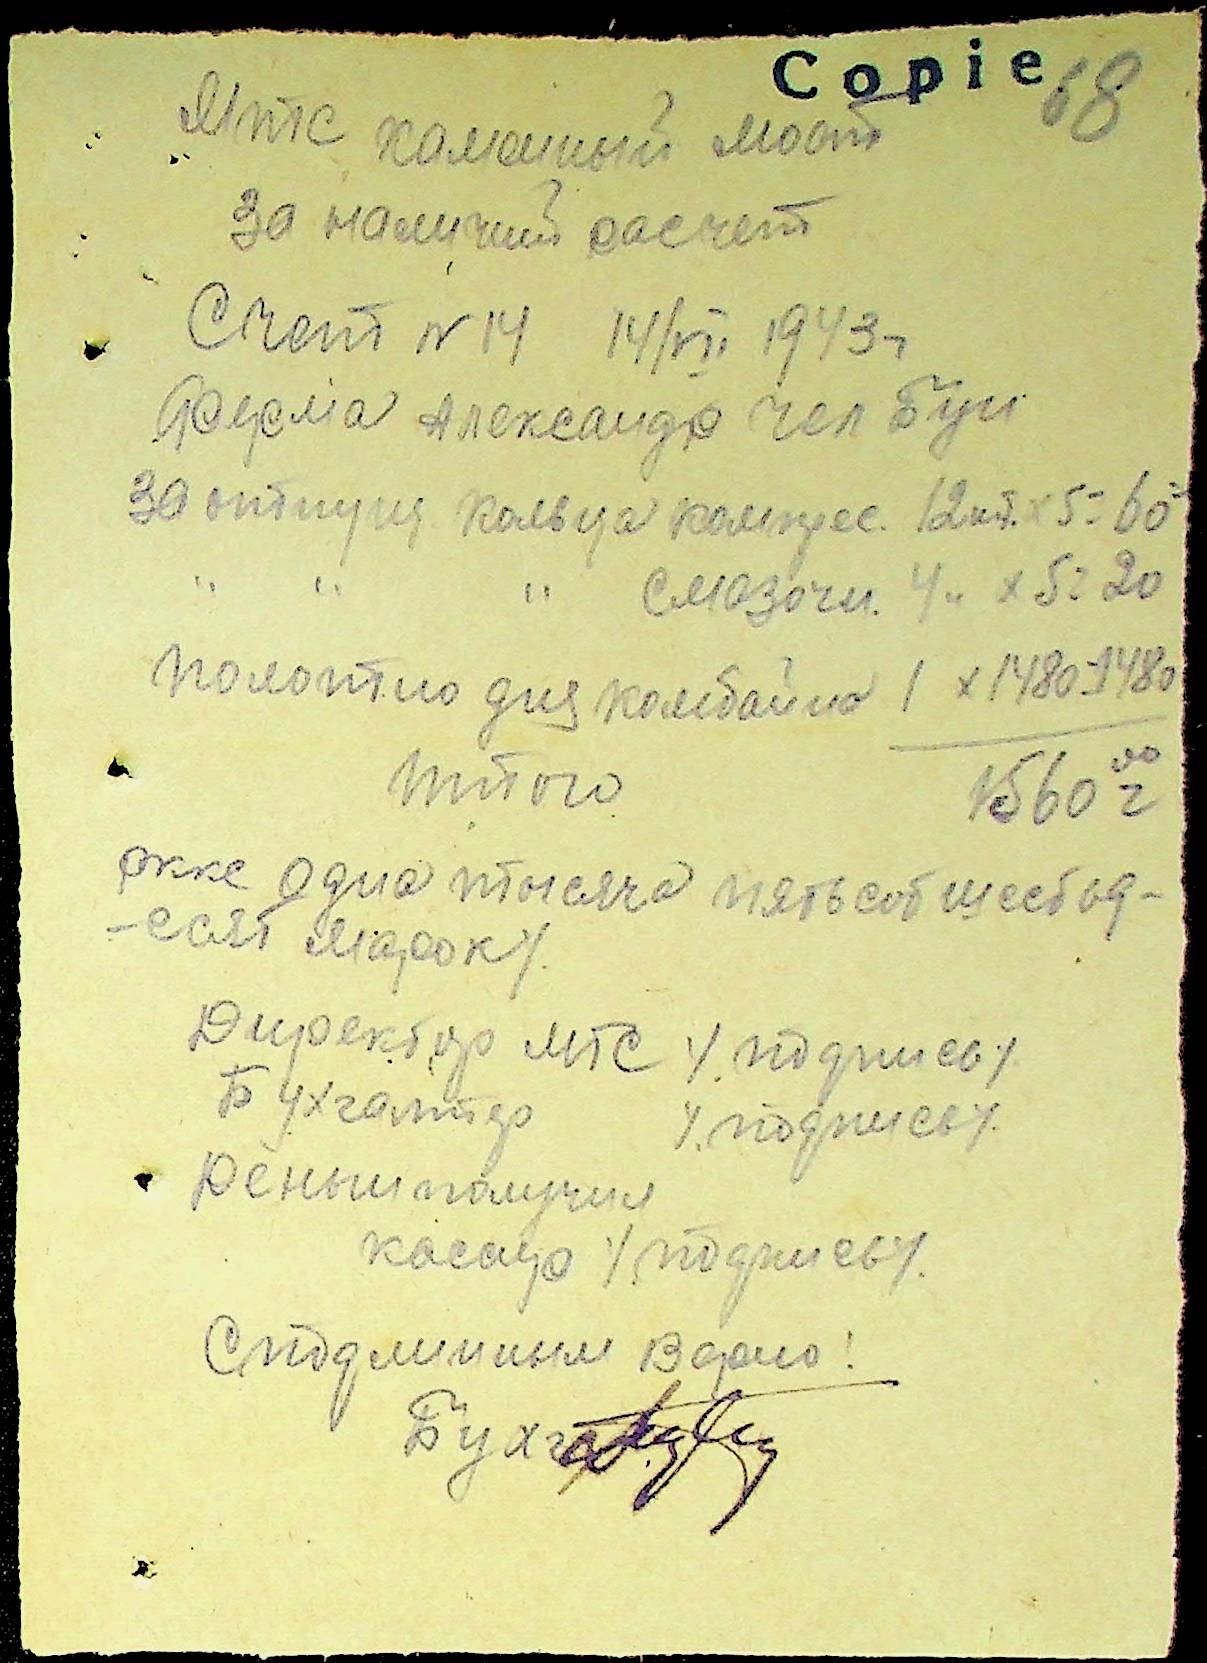 Copie 68
МТС каменный мост
За наличий расчет
Счет N 14 14/VII 1943г
Ферма Александр чел Бун
За отпущ. кольца компрес. 12 шт. x 5 = 60-
" " " смазочн. 4 " x 5 = 20
Полотно для комбайна 1 x 1480 = 1480
Итого 1560 00
ркке Одна тысяча пятьсот шестьд-
-есят марок /.
Директор МТС /. подпись /.
Бухгалтер /. подпись /.
Деньги получил
касаир /. подпись /.
С подлинным верно!
Бухгал